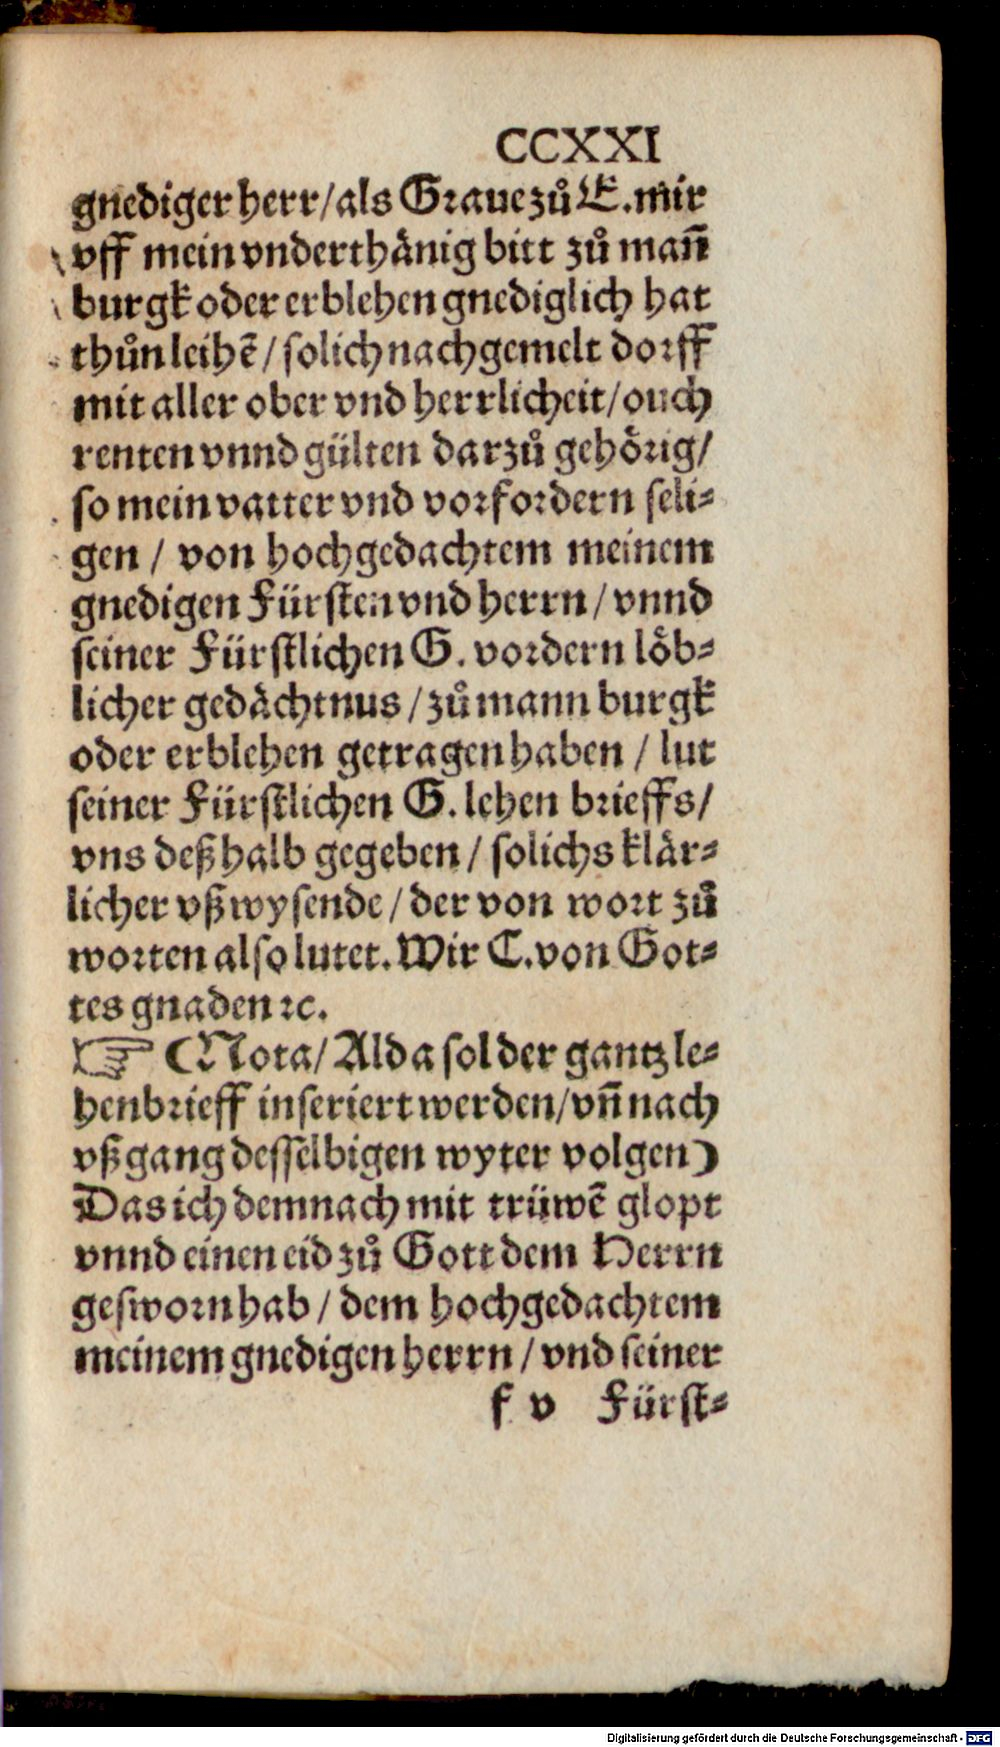 CCXXI
gnediger herr/als Graue zů E. mir
vff mein vnderthänig bitt zů mañ
burgk oder erblehen gnediglich hat
thůn leihē/solich nachgemelt dorff
mit aller ober vnd herrlicheit/ouch
renten vnnd gülten darzů gehörig/
so mein vatter vnd vorfordern seli⸗
gen / von hochgedachtem meinem
gnedigen Fürsten vnd herrn / vnnd
seiner Fürstlichen G. vordern löb⸗
licher gedächtnus / zů mann burgk
oder erblehen getragen haben / lut
seiner Fürstlichen G. lehen brieffs/
vns deßhalb gegeben / solichs klär⸗
licher vßwysende / der von wort zů
worten also lutet. Wir C. von Got⸗
tes gnaden ꝛc.
☞ (Nota/ Alda sol der gantz le⸗
henbrieff inseriert werden/vñ nach
vßgang desselbigen wyter volgen)
Das ich demnach mit trüwē glopt
vnnd einen eid zů Gott dem Herrn
gesworn hab / dem hochgedachtem
meinem gnedigen herrn / vnd seiner
f v Fürst⸗
Digitalisierung gefördert durch die Deutsche Forschungsgemeinschaft - DFG